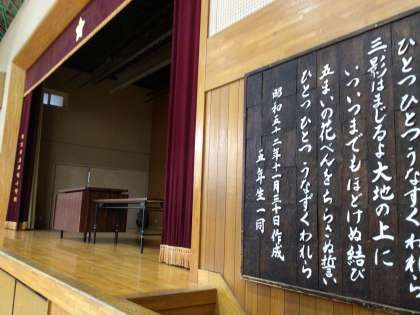 ひとつひとつうなずくわれら
三、影はまじるよ大地の上に
いついつまでもほどけぬ結び
五まいの花べんをちらさぬ誓い
ひとつひとつうなずくわれら
昭和五十二年十一月三十日作成
五年生一同